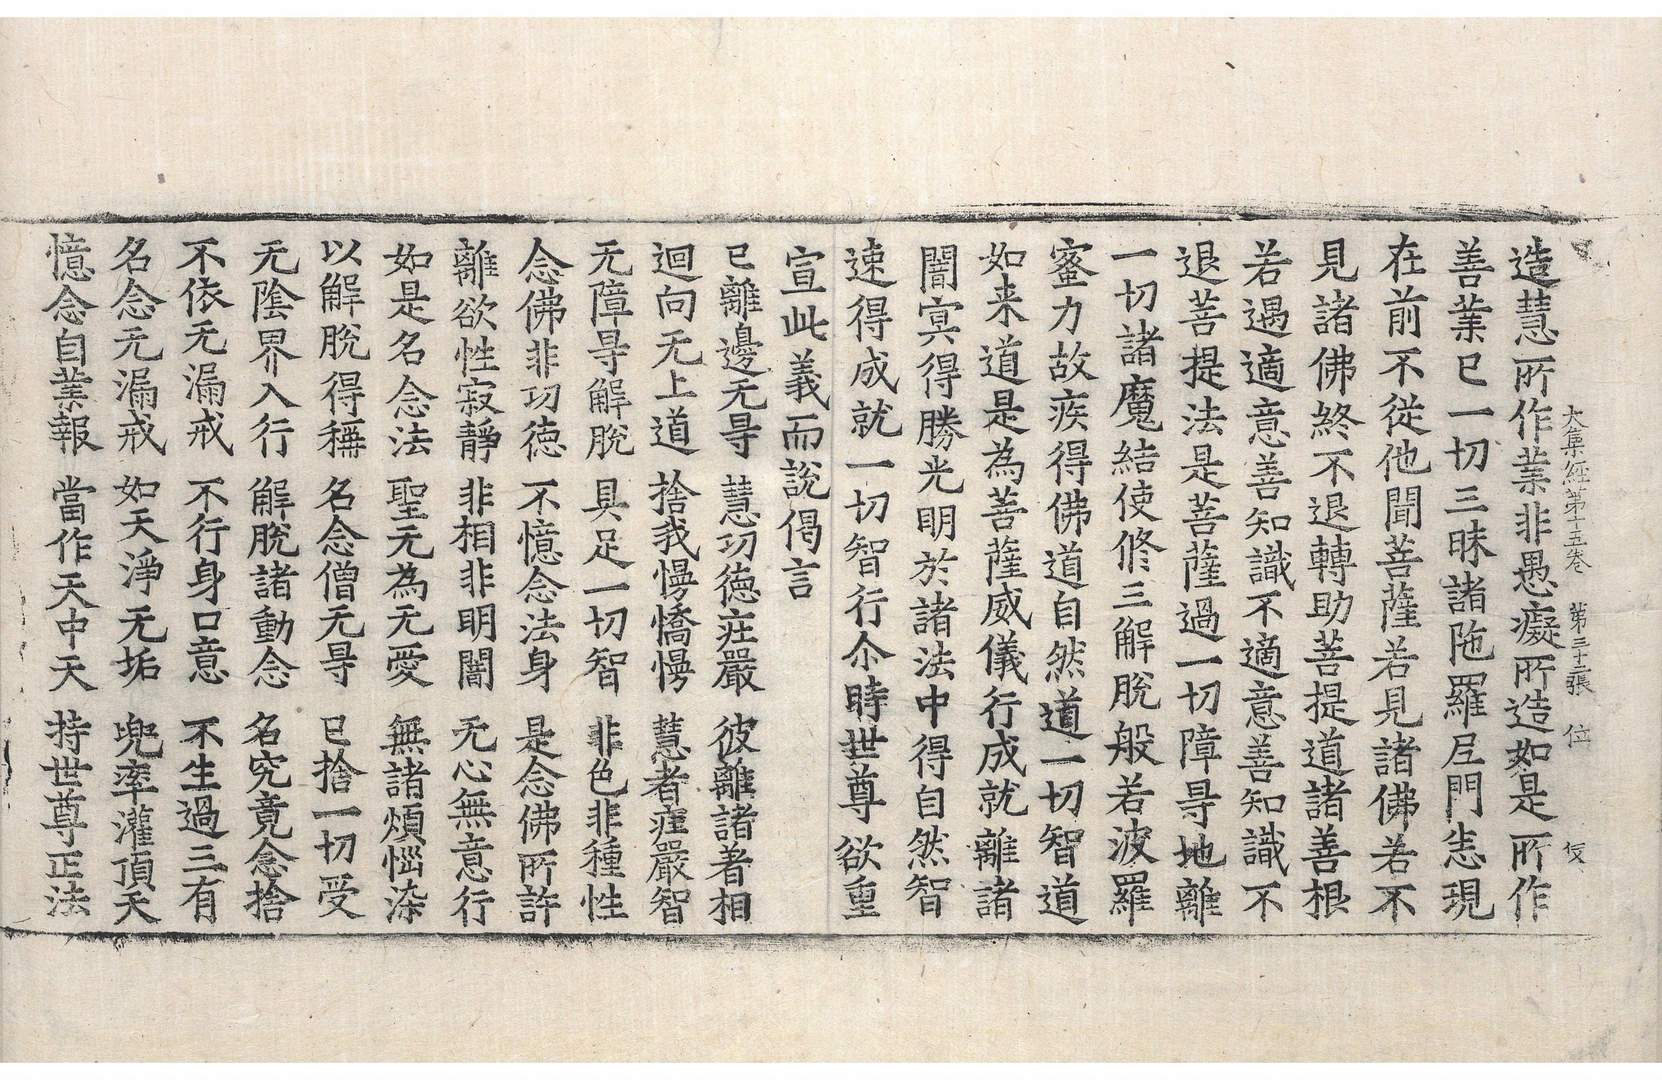 大集經第十五卷 第三十二張 位 伎
造慧所作業非愚癡所造如是所作
善業已一切三昧諸陁羅尼門恙現
在前不從他聞菩薩若見諸佛若不
見諸佛終不退轉助菩提道諸善根
若遇適意善知識不適意善知識不
退菩提法是菩薩過一切障㝵地離
一切諸魔結使修三解脫般若波羅
蜜力故疾得佛道自然道一切智道
如来道是為菩薩威儀行成就離諸
闇冥得勝光明於諸法中得自然智
速得成就一切智行尒時世尊欲重
宣此義而說偈言
已離邊无㝵 慧功德莊嚴 彼離諸著相
迴向无上道 捨我慢憍慢 慧者莊嚴智
无障㝵解脫 具足一切智 非色非種性
念佛非功德 不憶念法身 是念佛所許
離欲性寂靜 非相非明闇 无心無意行
如是名念法 聖无為无愛 無諸煩惱染
以解脫得稱 名念僧无㝵 已捨一切受
无陰界入行 解脫諸動念 名究竟念捨
不依无漏戒 不行身口意 不生過三有
名念无漏戒 如天淨无垢 兜率灌頂天
憶念自業報 當作天中天 持世尊正法